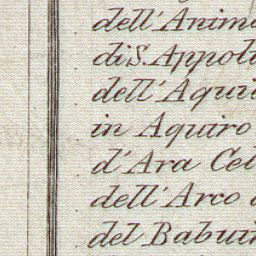 dell'Anima
di S. Appol
dell'Aqui
in Aquiro
d'Ara Cel
dell'Arco
del Babui